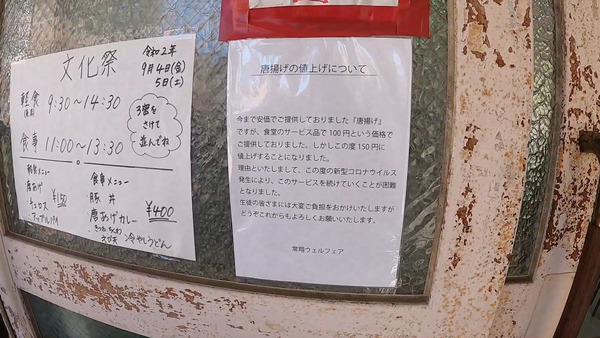 文化祭
令和2年
9月4日(金)
5日(土)
軽食 9:30～14:30
食事 11:00～13:30
3密を
さけて
並んでね
軽食メニュー
唐あげ
チュロス
アップルパイ
¥150
食事メニュー
豚丼
唐あげカレー
冷やしうどん
¥400
唐揚げの値上げについて
今まで安価でご提供しておりました『唐揚げ』
ですが、食堂のサービス品で100円という価格で
ご提供しておりました。しかしこの度150円に
値上げすることになりました。
理由といたしまして、この度の新型コロナウイルス
発生により、このサービスを続けていくことが困難
となりました。
生徒の皆さまには大変ご負担をおかけいたしますが
どうぞこれからもよろしくお願いいたします。
常翔ウェルフェア